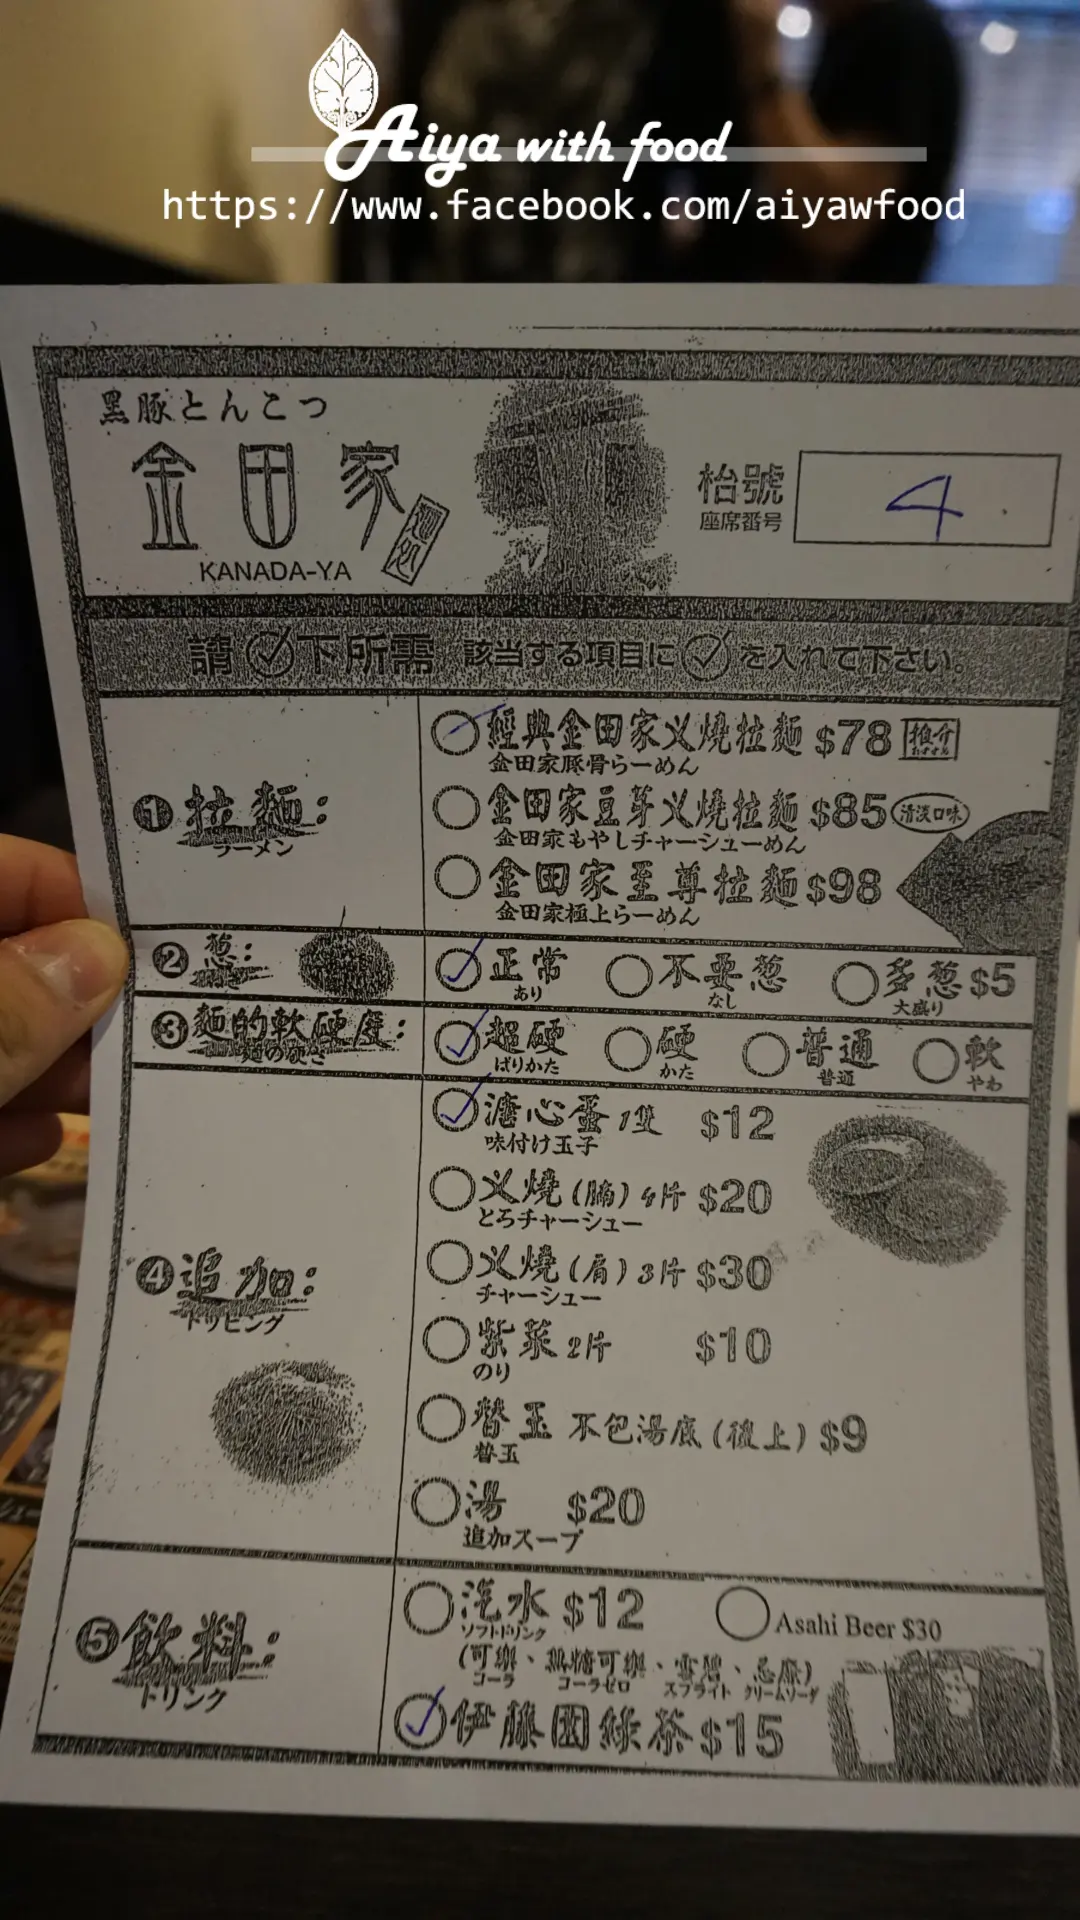 Aiya with food
https://www.facebook.com/aiyawfood
黒豚とんこつ
金田家
KANADA-YA
枱號
座席番号
4
請 下所需 該当する項目に を入れて下さい。
❶拉麵:
ラーメン
經典金田家叉燒拉麵 $78 推介 おすすめ
金田家豚骨らーめん
金田家豆芽叉燒拉麵 $85 清淡口味
金田家もやしチャーシューめん
金田家至尊拉麵 $98
金田家極上らーめん
❷葱:
正常 不要葱 多葱 $5
あり なし 大盛り
❸麵的軟硬度:
麺のかたさ
超硬 硬 普通 軟
ばりかた かた 普通 やわ
❹追加:
トッピング
溏心蛋 1隻 $12
味付け玉子
叉燒 (腩) 4片 $20
とろチャーシュー
叉燒 (肩) 3片 $30
チャーシュー
紫菜 2片 $10
のり
替玉 不包湯底 (後上) $9
替玉
湯 $20
追加スープ
❺飲料:
ドリンク
汽水 $12 Asahi Beer $30
ソフトドリンク
(可樂、無糖可樂、雪碧、忌廉)
コーラ コーラゼロ スプライト クリームソーダ
伊藤園綠茶 $15